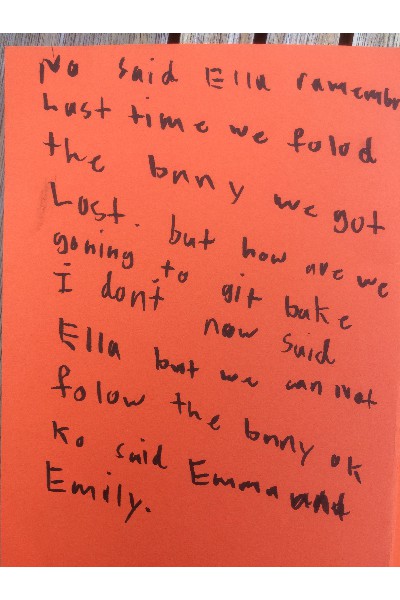 No said Ella ramembr
Last time we folod
the bnny we got
Lost. but how are we
goning to git bake
I dont now said
Ella but we can not
folow the bnny ok
Ko said Emma and
Emily.